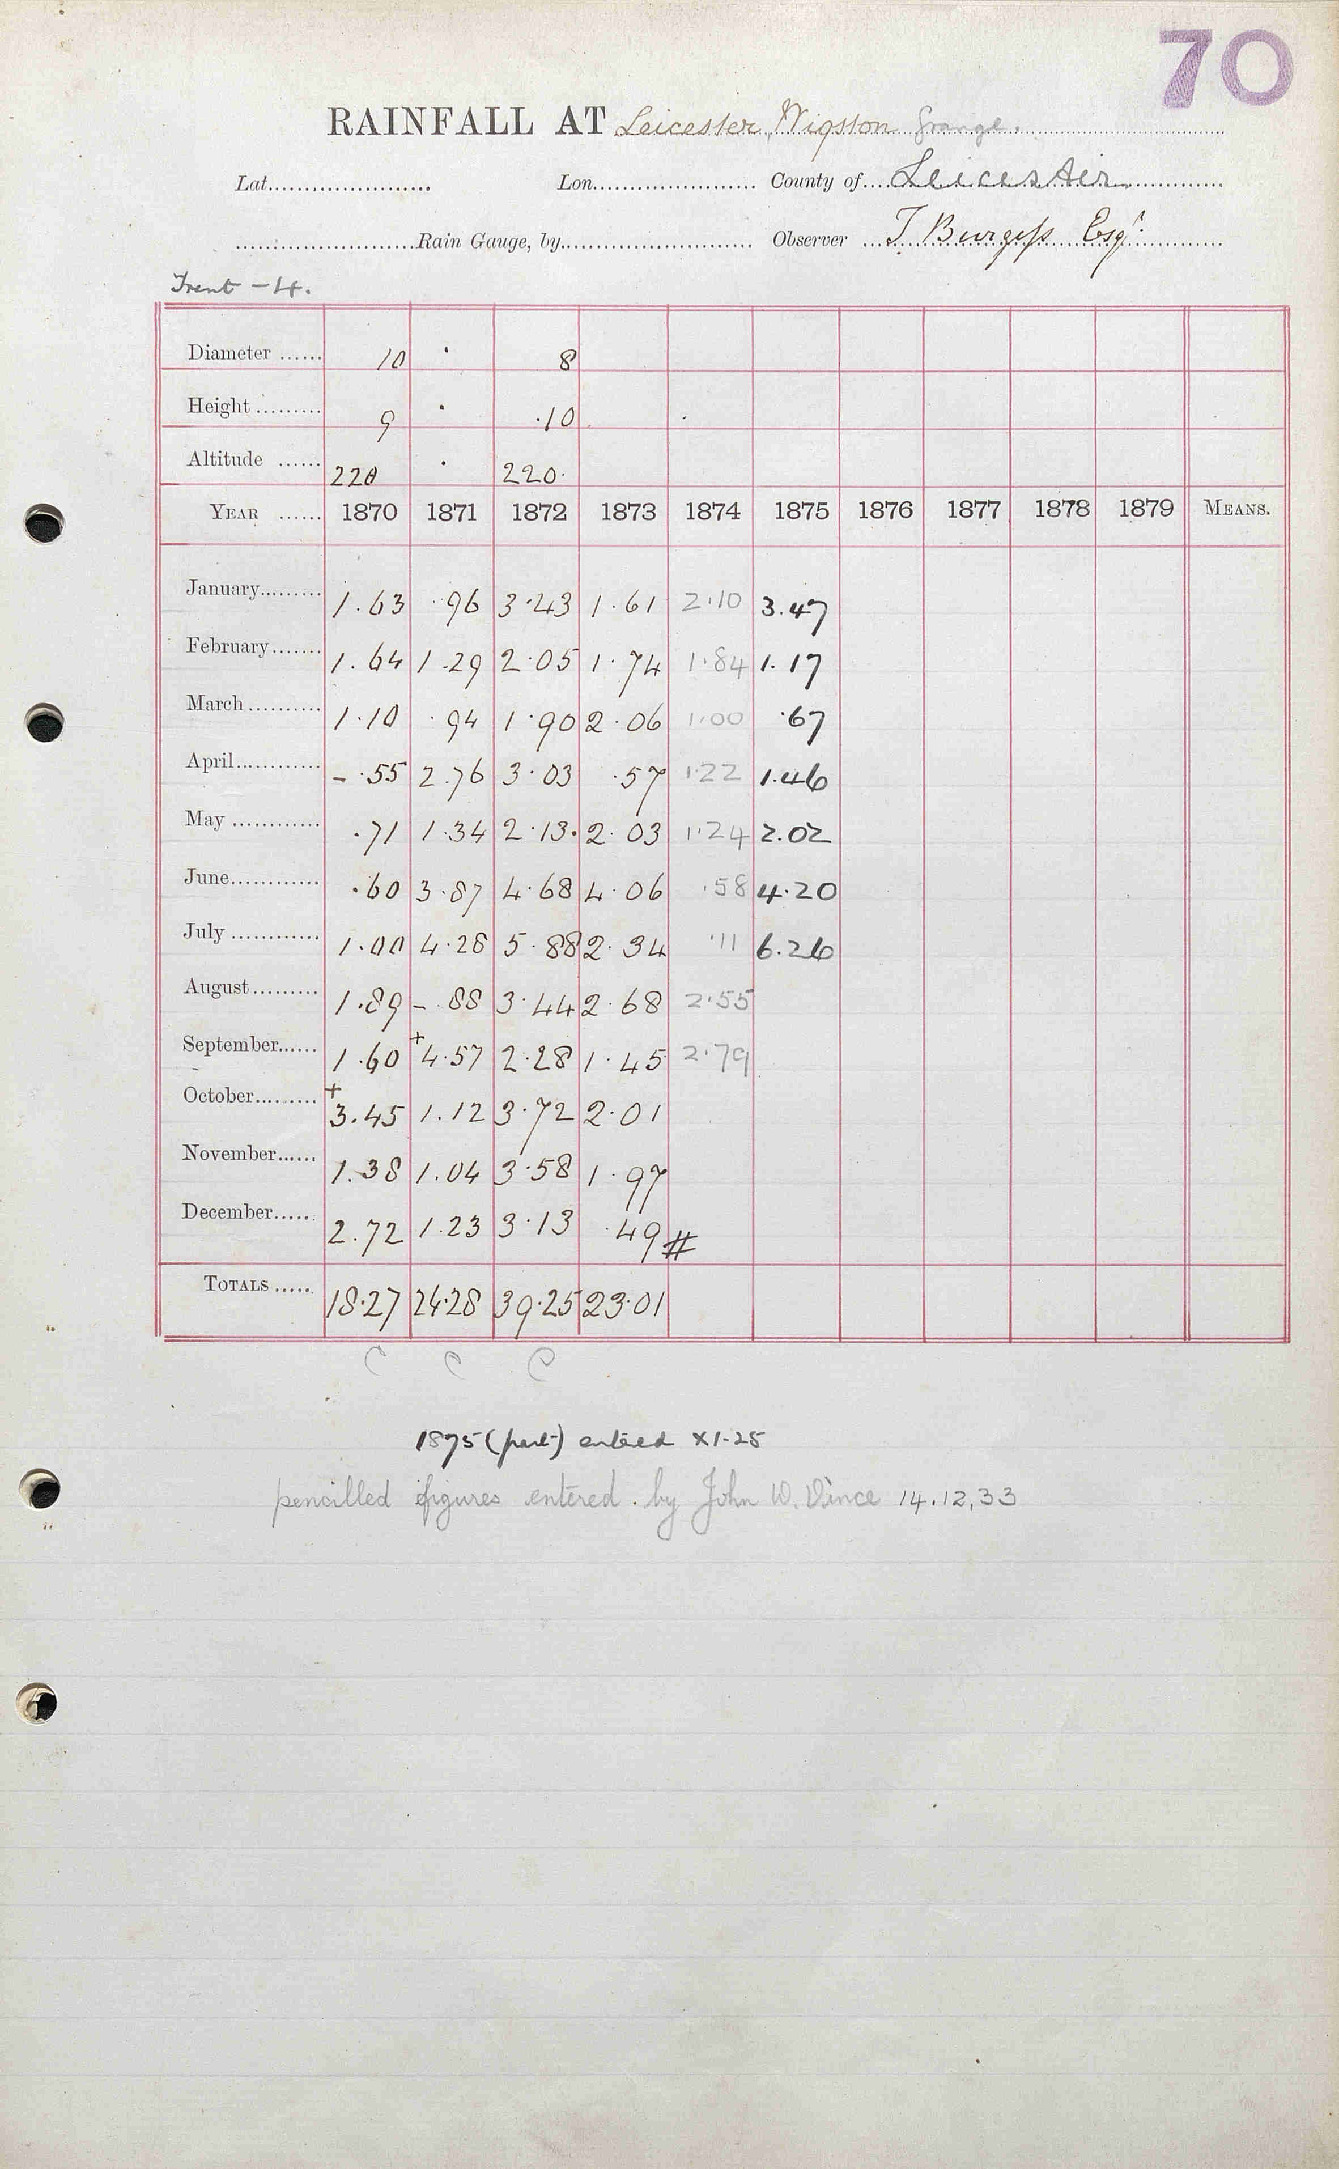 70
RAINFALL AT Leicester, Wigston Grange.
Lat...................... Lon....................... County of....Leicester
.........................Rain Gauge, by........................... Observer ...T. Burgess Esqr.
Trent - 4.
Diameter ...... 10 . 8
Height ......... 9 . .10
Altitude ...... 220 . 220.
YEAR ...... 1870 1871 1872 1873 1874 1875 1876 1877 1878 1879 MEANS.
January......... 1.63 .96 3.43 1.61 2.10 3.47
February....... 1.64 1.29 2.05 1.74 1.84 1.17
March.......... 1.10 .94 1.90 2.06 1.00 .67
April............ - .55 2.76 3.03 .57 1.22 1.46
May ............ .71 1.34 2.13. 2.03 1.24 2.02
June............ .60 3.87 4.68 4.06 .58 4.20
July ............ 1.00 4.28 5.88 2.34 .11 6.26
August......... 1.89 - .88 3.44 2.68 2.55
September...... 1.60 +4.57 2.28 1.45 2.79
October......... +3.45 1.12 3.72 2.01
November...... 1.38 1.04 3.58 1.97
December...... 2.72 1.23 3.13 .49 #
TOTALS ..... 18.27 24.28 39.25 23.01
C C C
1875 (part) entered X1.25
pencilled figures entered by John W. Vince 14.12.33